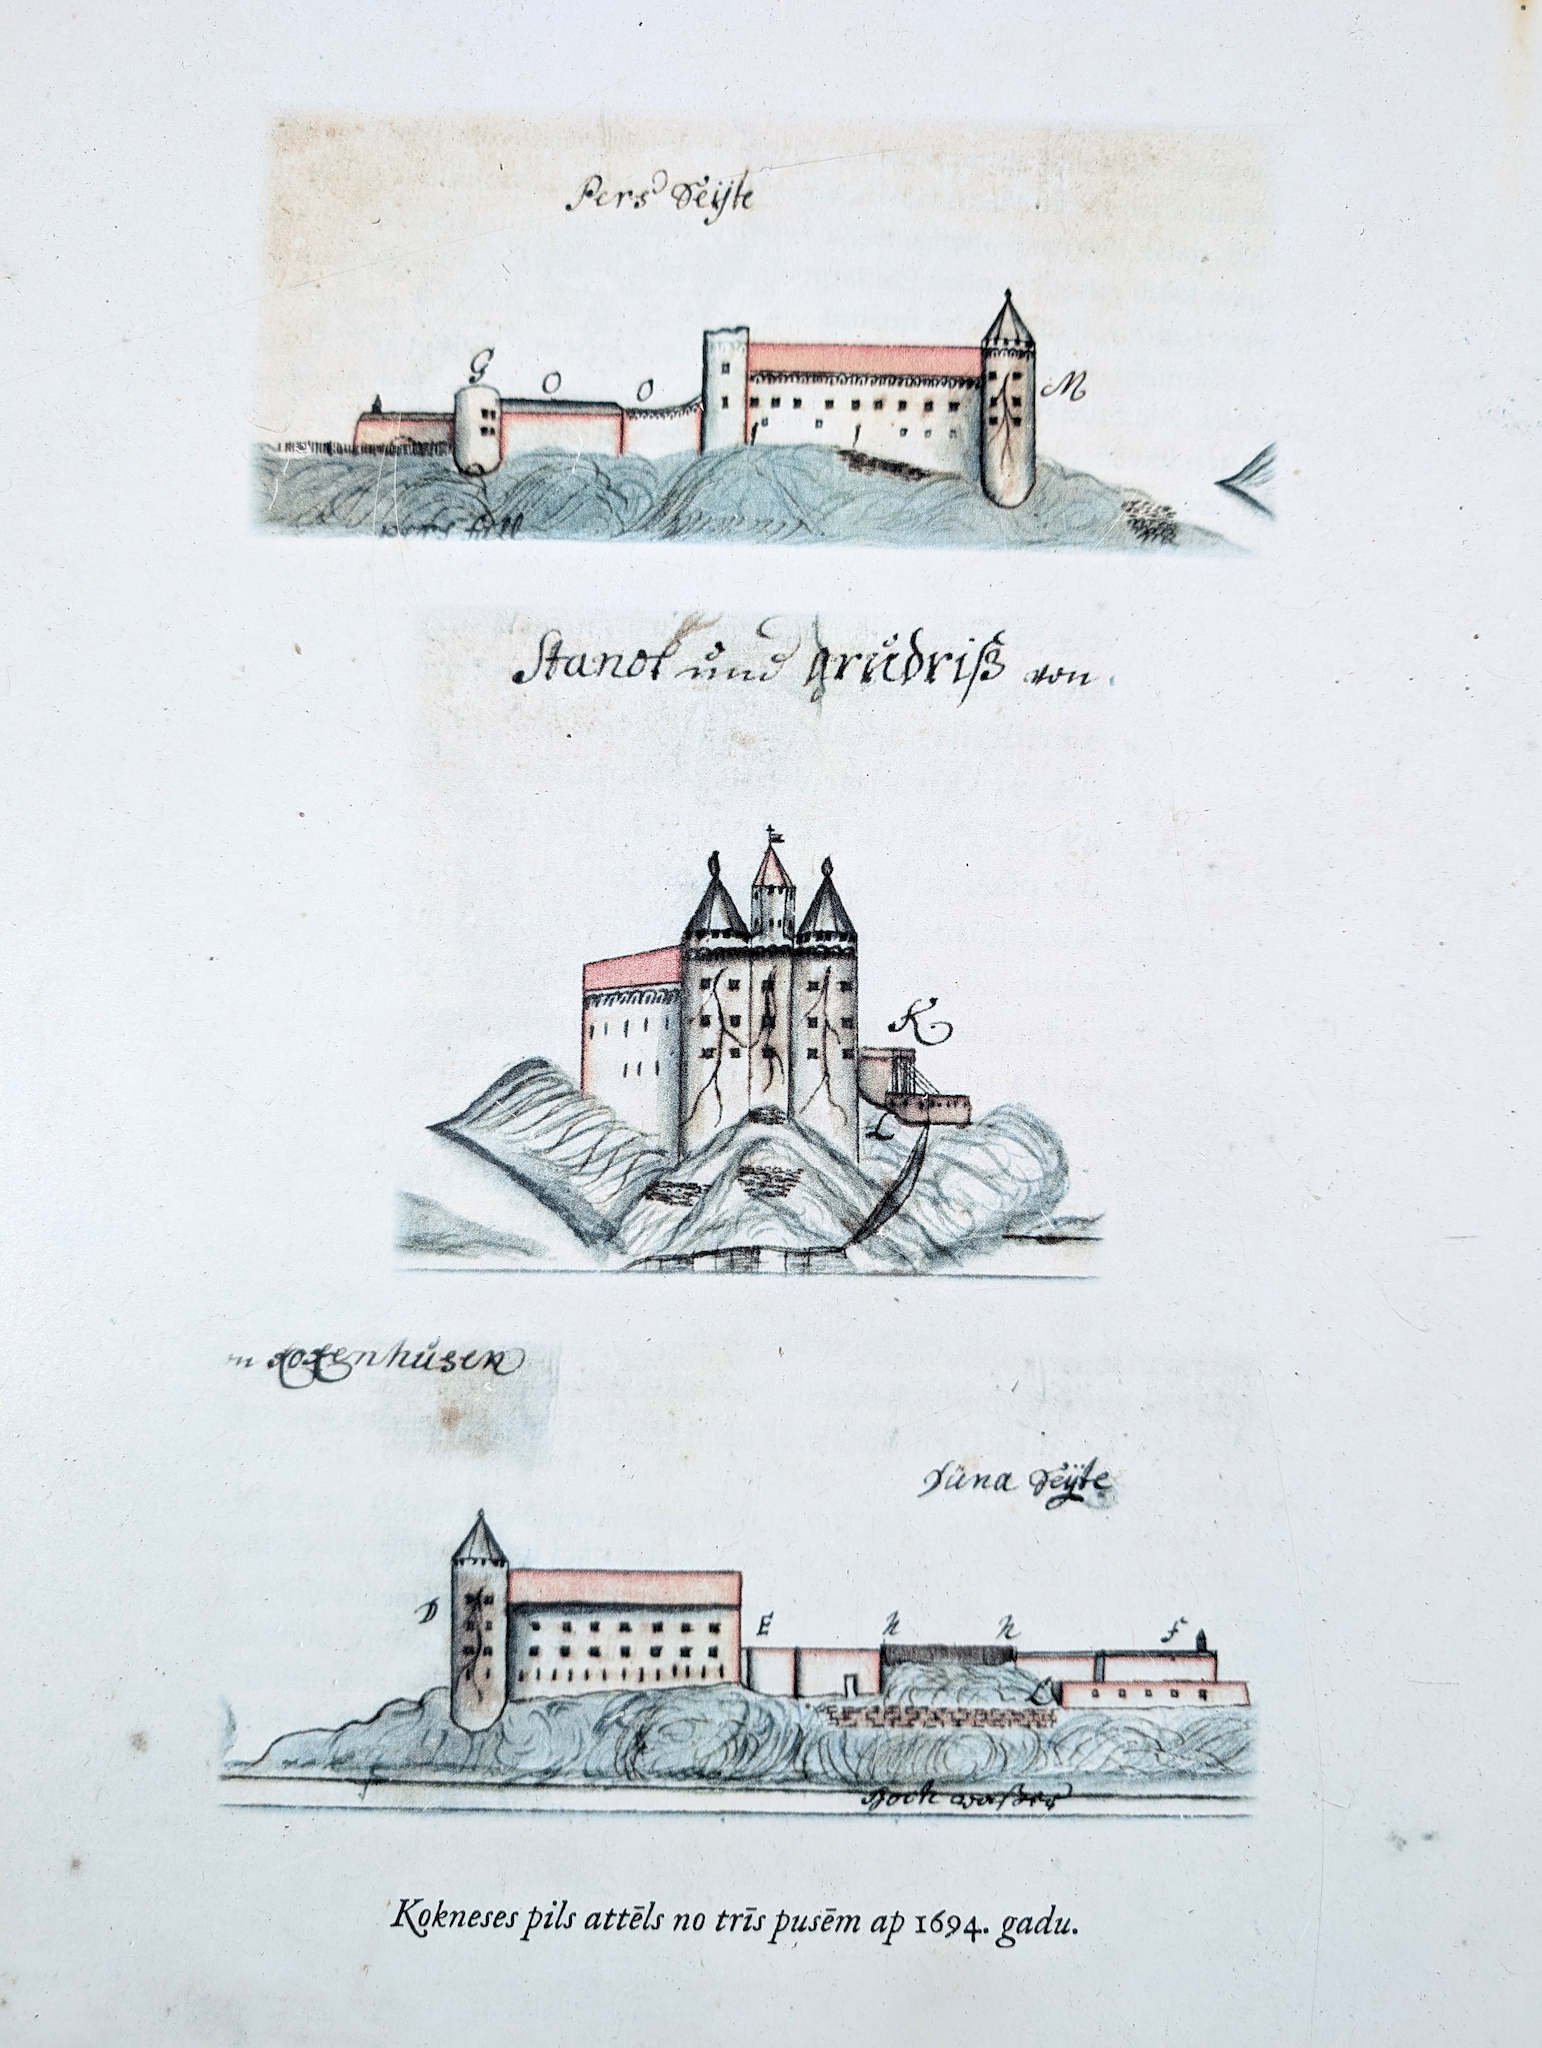 Pers Seijte
G
O O
M
Stand und grüdriß von
K
L
Kokenhusen
Düna Seijte
D
E
N N
F
L
Hoch waßer
Kokneses pils attēls no trīs pusēm ap 1694. gadu.